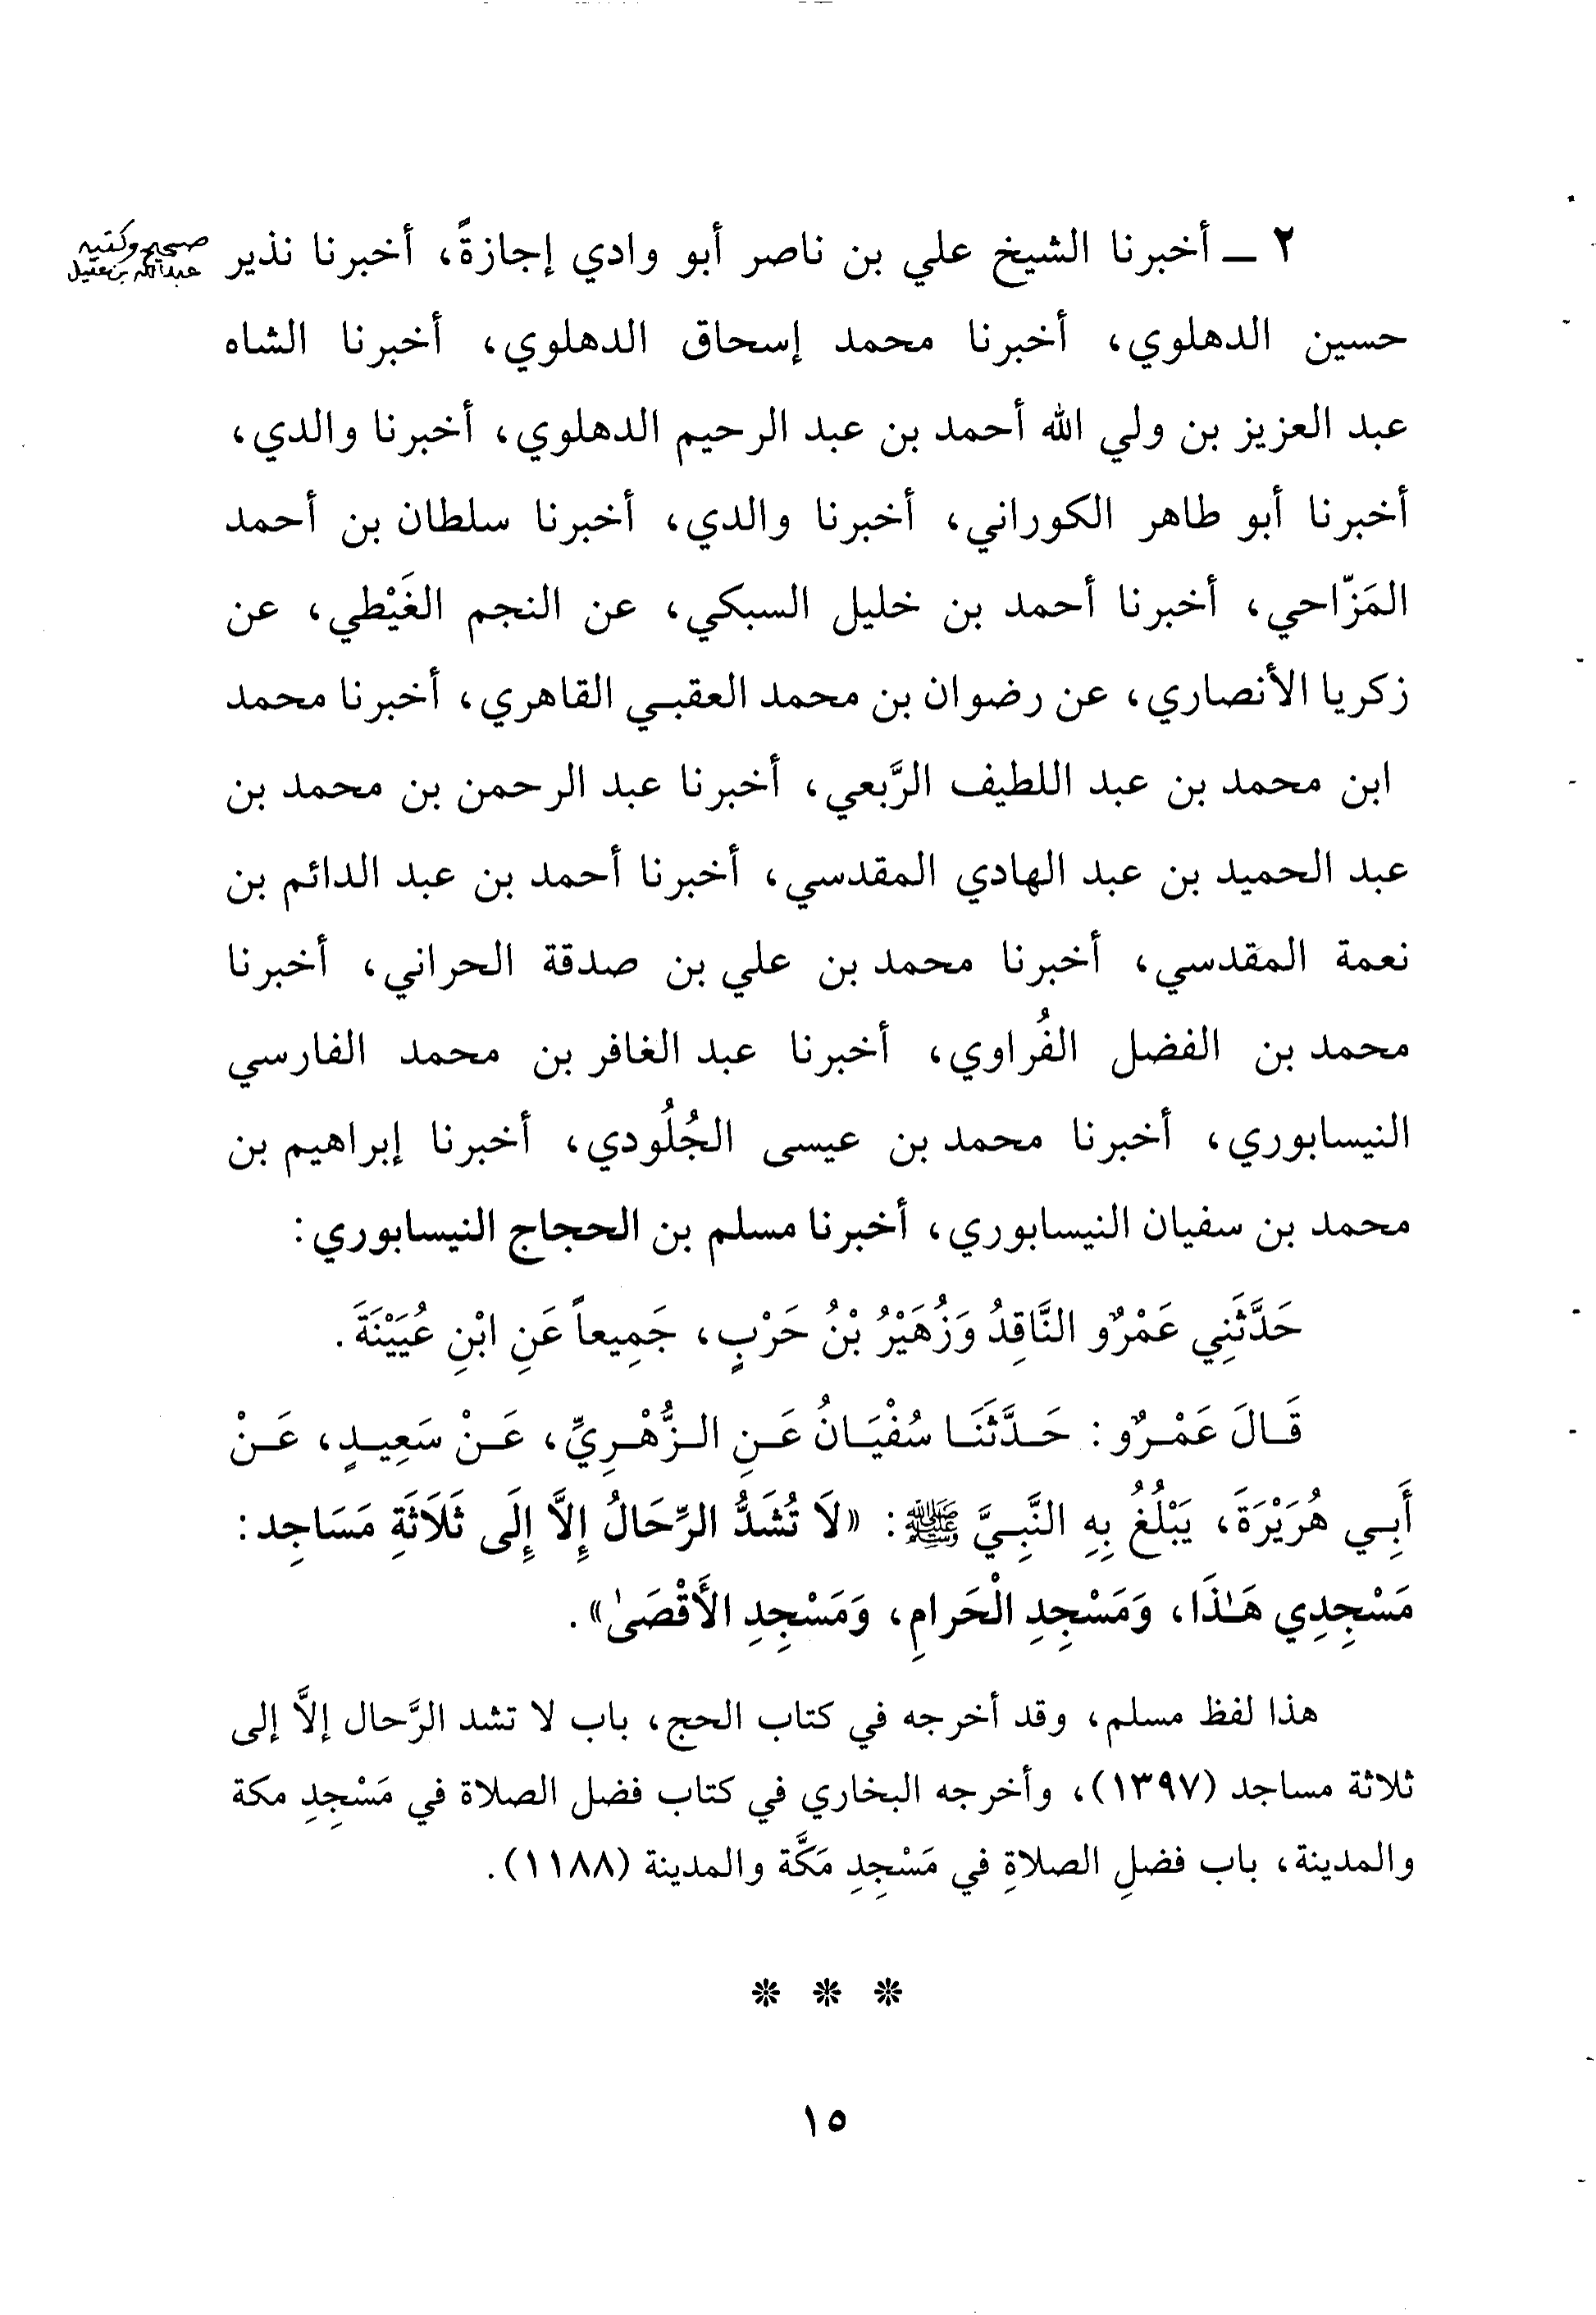 ٢ ـ أخبرنا الشيخ علي بن ناصر أبو وادي إجازةً، أخبرنا نذير
صحيح وكتبه
عبدالله بن عقيل
حسين الدهلوي، أخبرنا محمد إسحاق الدهلوي، أخبرنا الشاه
عبد العزيز بن ولي الله أحمد بن عبد الرحيم الدهلوي، أخبرنا والدي،
أخبرنا أبو طاهر الكوراني، أخبرنا والدي، أخبرنا سلطان بن أحمد
المَزّاحي، أخبرنا أحمد بن خليل السبكي، عن النجم الغَيْطي، عن
زكريا الأنصاري، عن رضوان بن محمد العقبـي القاهري، أخبرنا محمد
ابن محمد بن عبد اللطيف الرَّبعي، أخبرنا عبد الرحمن بن محمد بن
عبد الحميد بن عبد الهادي المقدسي، أخبرنا أحمد بن عبد الدائم بن
نعمة المقدسي، أخبرنا محمد بن علي بن صدقة الحراني، أخبرنا
محمد بن الفضل الفُراوي، أخبرنا عبد الغافر بن محمد الفارسي
النيسابوري، أخبرنا محمد بن عيسى الجُلُودي، أخبرنا إبراهيم بن
محمد بن سفيان النيسابوري، أخبرنا مسلم بن الحجاج النيسابوري:
حَدَّثَنِي عَمْرٌو النَّاقِدُ وَزُهَيْرُ بْنُ حَرْبٍ، جَمِيعاً عَنِ ابْنِ عُيَيْنَةَ.
قَـالَ عَمْـرٌو: حَـدَّثَنَـا سُفْيَـانُ عَـنِ الـزُّهْـرِيِّ، عَـنْ سَعِيـدٍ، عَـنْ
أَبِـي هُرَيْرَةَ، يَبْلُغُ بِهِ النَّبِـيَّ ﷺ: «لاَ تُشَدُّ الرِّحَالُ إِلاَّ إِلَى ثَلَاثَةِ مَسَاجِد:
مَسْجِدِي هَـٰذَا، وَمَسْجِدِ الْحَرامِ، وَمَسْجِدِ الأَقْصَىٰ».
هذا لفظ مسلم، وقد أخرجه في كتاب الحج، باب لا تشد الرَّحال إلاَّ إلى
ثلاثة مساجد (١٣٩٧)، وأخرجه البخاري في كتاب فضل الصلاة في مَسْجِدِ مكة
والمدينة، باب فضلِ الصلاةِ في مَسْجِدِ مَكَّة والمدينة (١١٨٨).
* * *
١٥